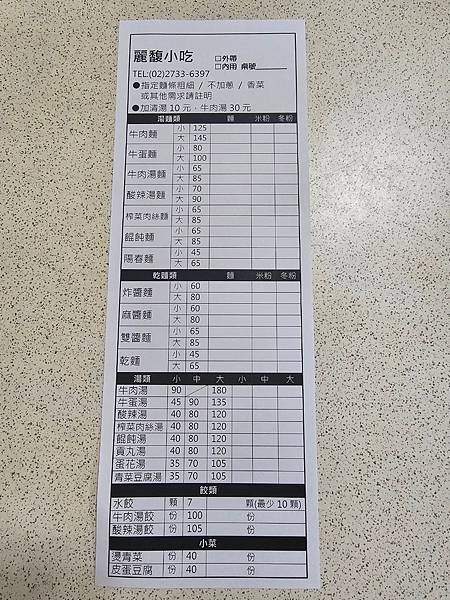 麗馥小吃 □外帶
□內用 桌號
TEL:(02)2733-6397
●指定麵條粗細 / 不加蔥 / 香菜
或其他需求請註明
●加清湯 10 元，牛肉湯 30 元
湯麵類 麵 米粉 冬粉
牛肉麵 小 125
大 145
牛蛋麵 小 80
大 100
牛肉湯麵 小 65
大 85
酸辣湯麵 小 70
大 90
榨菜肉絲麵 小 65
大 85
餛飩麵 小 65
大 85
陽春麵 小 45
大 65
乾麵類 麵 米粉 冬粉
炸醬麵 小 60
大 80
麻醬麵 小 60
大 80
雙醬麵 小 65
大 85
乾麵 小 45
大 65
湯類 小 中 大 小 中 大
牛肉湯 90 / 180
牛蛋湯 45 90 135
酸辣湯 40 80 120
榨菜肉絲湯 40 80 120
餛飩湯 40 80 120
貢丸湯 40 80 120
蛋花湯 35 70 105
青菜豆腐湯 35 70 105
餃類
水餃 顆 7 顆(最少 10 顆)
牛肉湯餃 份 100 份
酸辣湯餃 份 105 份
小菜
燙青菜 份 40 份
皮蛋豆腐 份 40 份